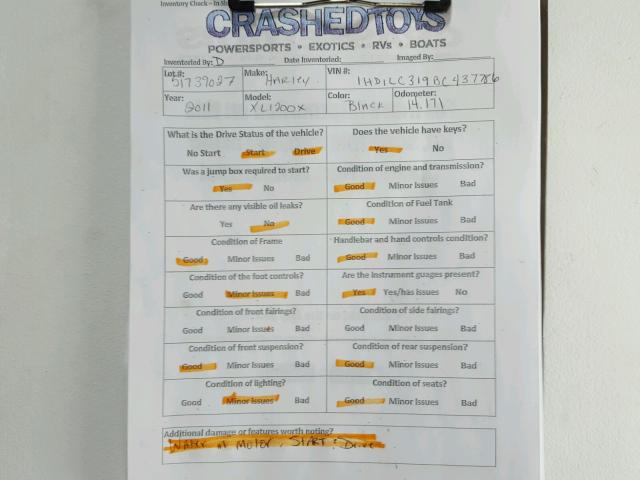 Inventory Check – In
CRASHEDTOYS
POWERSPORTS • EXOTICS • RVs • BOATS
Inventoried By: D Date Inventoried: Imaged By:
Lot #: 51739027 Make: HARLEY VIN #: 1HD1LC319BC437786
Year: 2011 Model: XL1200X Color: Black Odometer: 14,171
What is the Drive Status of the vehicle? Does the vehicle have keys?
No Start Start Drive Yes No
Was a jump box required to start? Condition of engine and transmission?
Yes No Good Minor Issues Bad
Are there any visible oil leaks? Condition of Fuel Tank
Yes No Good Minor Issues Bad
Condition of Frame Handlebar and hand controls condition?
Good Minor Issues Bad Good Minor Issues Bad
Condition of the foot controls? Are the instrument guages present?
Good Minor Issues Bad Yes Yes/has issues No
Condition of front fairings? Condition of side fairings?
Good Minor Issues Bad Good Minor Issues Bad
Condition of front suspension? Condition of rear suspension?
Good Minor Issues Bad Good Minor Issues Bad
Condition of lighting? Condition of seats?
Good Minor Issues Bad Good Minor Issues Bad
Additional damage or features worth noting?
Water in Motor, START : Drive